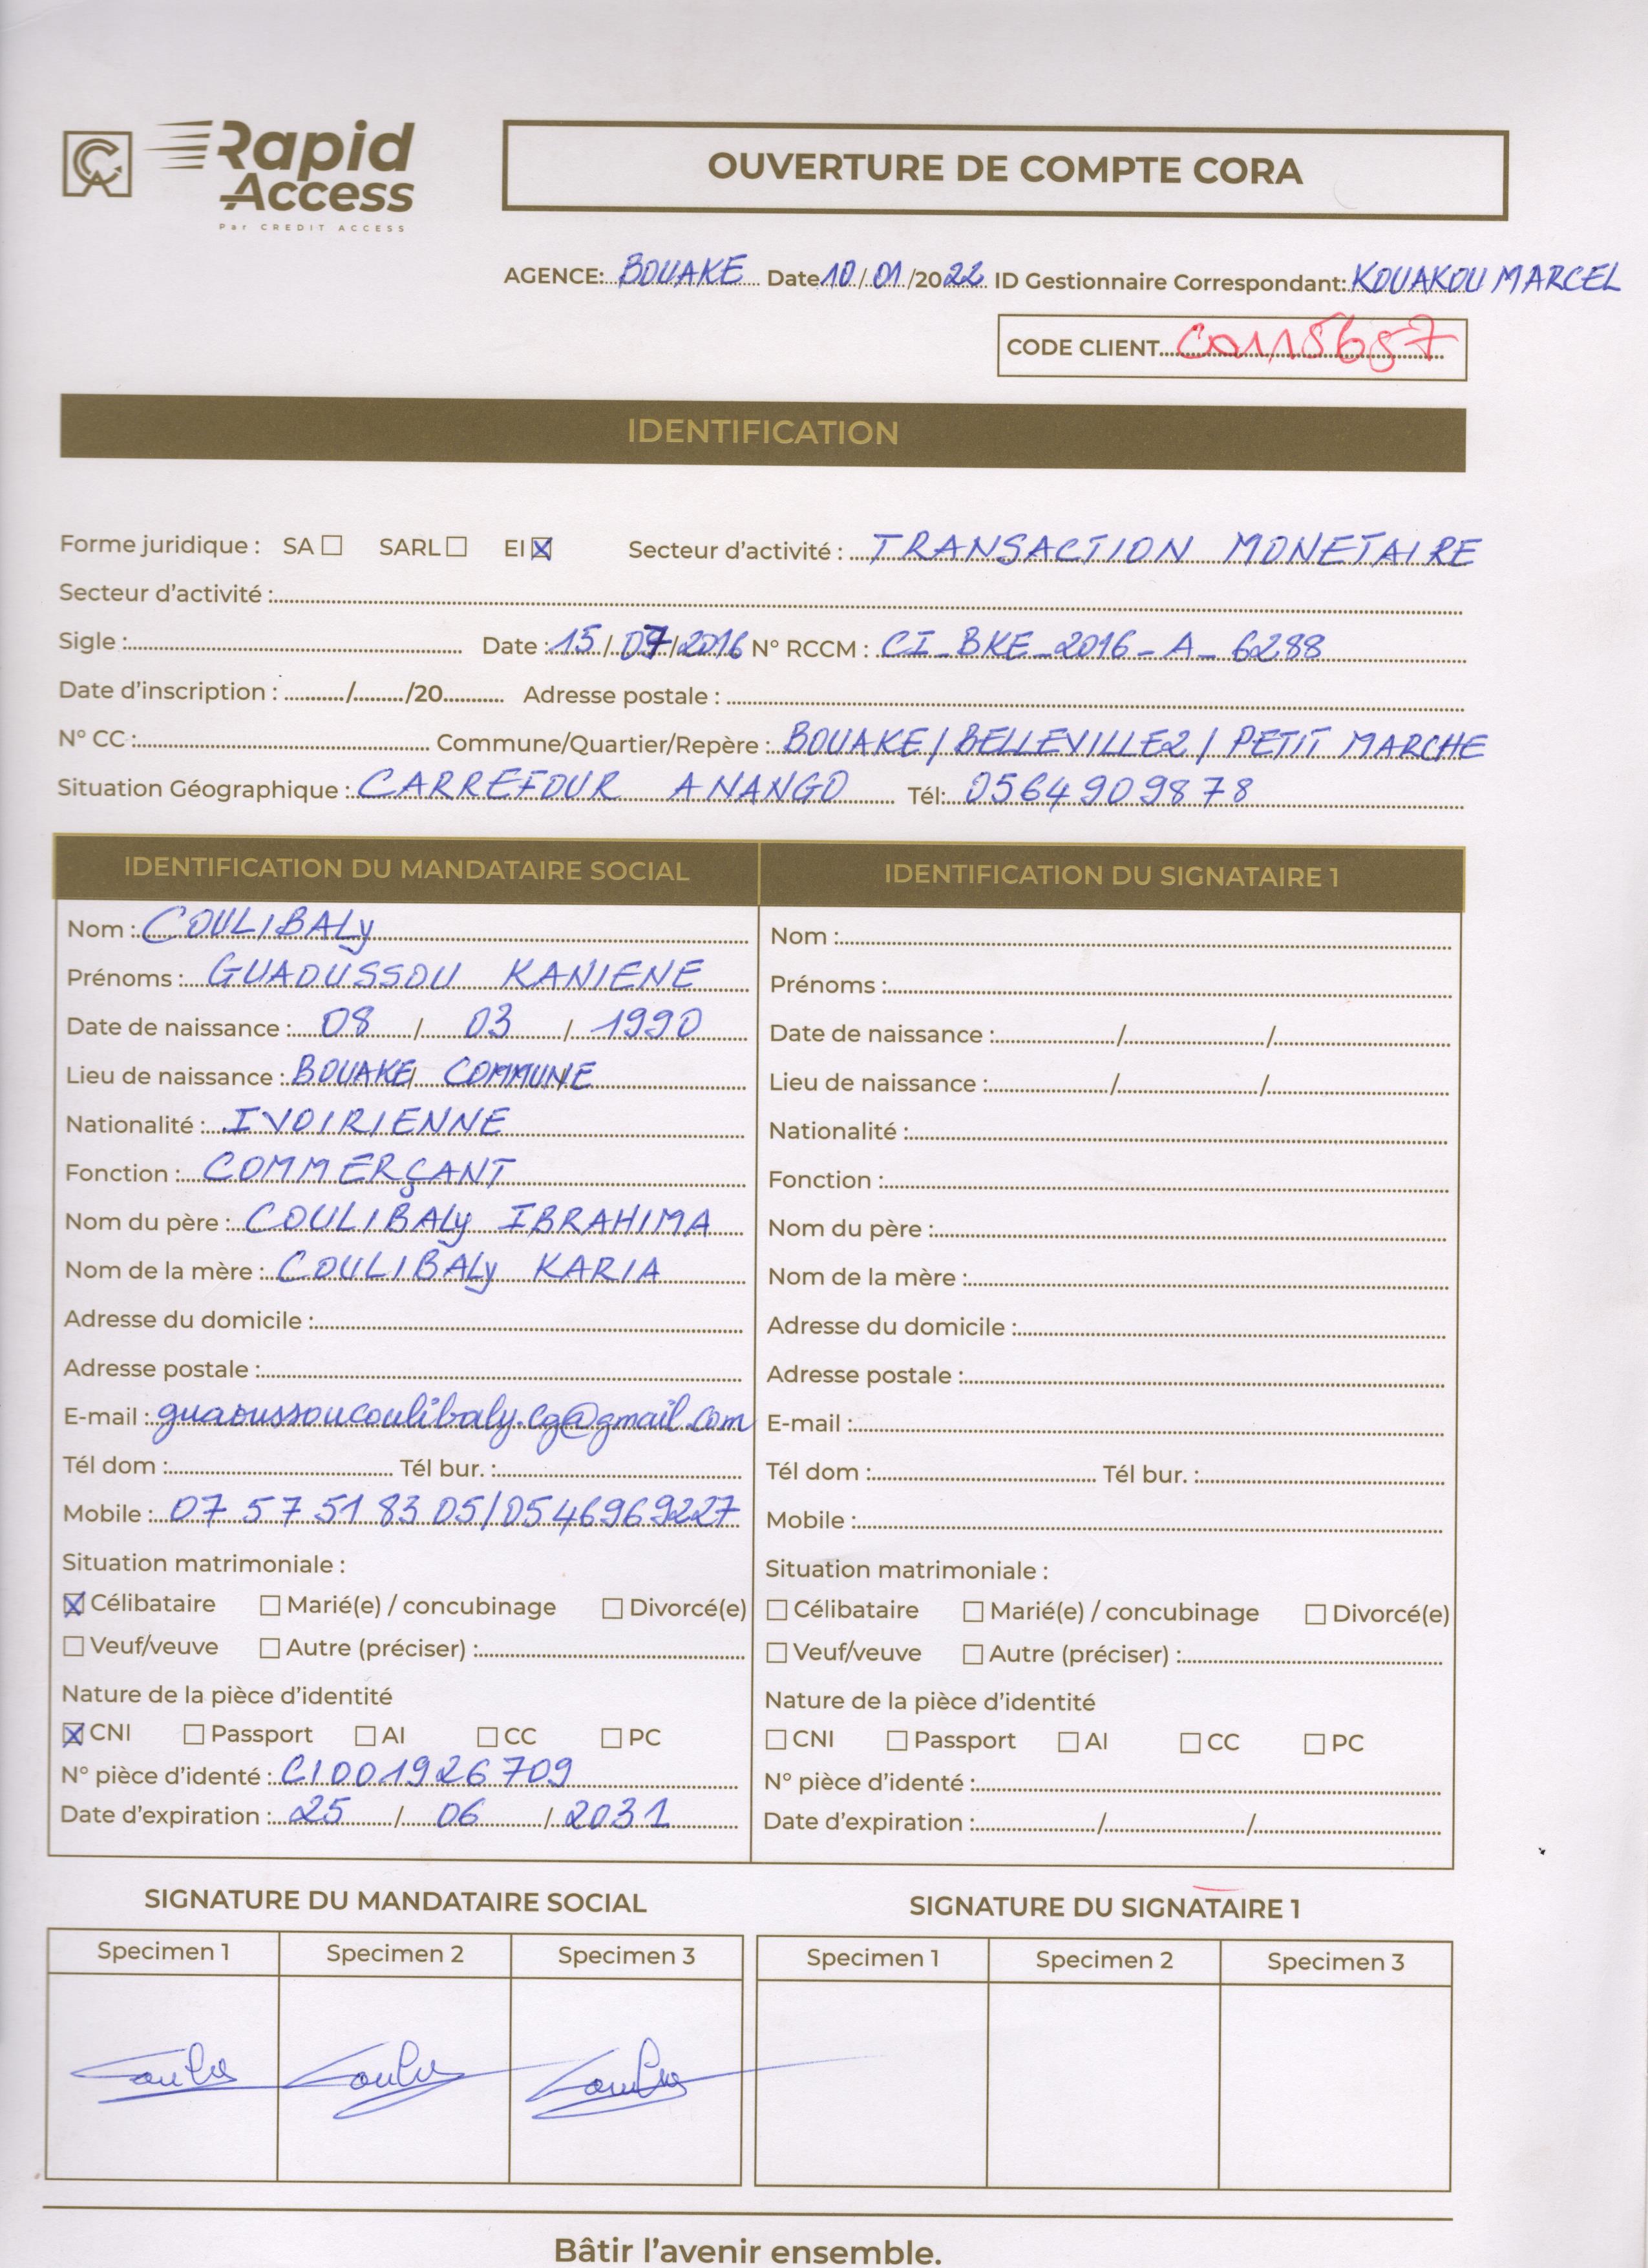 CA Rapid Access
Par CREDIT ACCESS
OUVERTURE DE COMPTE CORA
AGENCE: BOUAKE Date 10/01/2022 ID Gestionnaire Correspondant: KOUAKOU MARCEL
CODE CLIENT C0115657
IDENTIFICATION
Forme juridique : SA ☐ SARL ☐ EI ☒ Secteur d'activité : TRANSACTION MONETAIRE
Secteur d'activité :
Sigle : Date : 15/07/2016 N° RCCM : CI_BKE_2016-A-6288
Date d'inscription : / /20 Adresse postale :
N° CC : Commune/Quartier/Repère : BOUAKE/BELLEVILLE2/PETIT MARCHE
Situation Géographique : CARREFOUR ANANGO Tél: 0564909878
IDENTIFICATION DU MANDATAIRE SOCIAL
Nom : COULIBALY
Prénoms : GUAOUSSOU KANIENE
Date de naissance : 08 / 03 / 1990
Lieu de naissance : BOUAKE COMMUNE
Nationalité : IVOIRIENNE
Fonction : COMMERÇANT
Nom du père : COULIBALY IBRAHIMA
Nom de la mère : COULIBALY KARIA
Adresse du domicile :
Adresse postale :
E-mail : guaoussoucoulibaly.cg@gmail.com
Tél dom : Tél bur. :
Mobile : 07 57 51 83 05/0546969227
Situation matrimoniale :
☒ Célibataire ☐ Marié(e) / concubinage ☐ Divorcé(e)
☐ Veuf/veuve ☐ Autre (préciser) :
Nature de la pièce d'identité
☒ CNI ☐ Passport ☐ AI ☐ CC ☐ PC
N° pièce d'identé : CI001926709
Date d'expiration : 25 / 06 / 2031
IDENTIFICATION DU SIGNATAIRE 1
Nom :
Prénoms :
Date de naissance : / /
Lieu de naissance : / /
Nationalité :
Fonction :
Nom du père :
Nom de la mère :
Adresse du domicile :
Adresse postale :
E-mail :
Tél dom : Tél bur. :
Mobile :
Situation matrimoniale :
☐ Célibataire ☐ Marié(e) / concubinage ☐ Divorcé(e)
☐ Veuf/veuve ☐ Autre (préciser) :
Nature de la pièce d'identité
☐ CNI ☐ Passport ☐ AI ☐ CC ☐ PC
N° pièce d'identé :
Date d'expiration : / /
SIGNATURE DU MANDATAIRE SOCIAL
Specimen 1 Specimen 2 Specimen 3
SIGNATURE DU SIGNATAIRE 1
Specimen 1 Specimen 2 Specimen 3
Bâtir l'avenir ensemble.